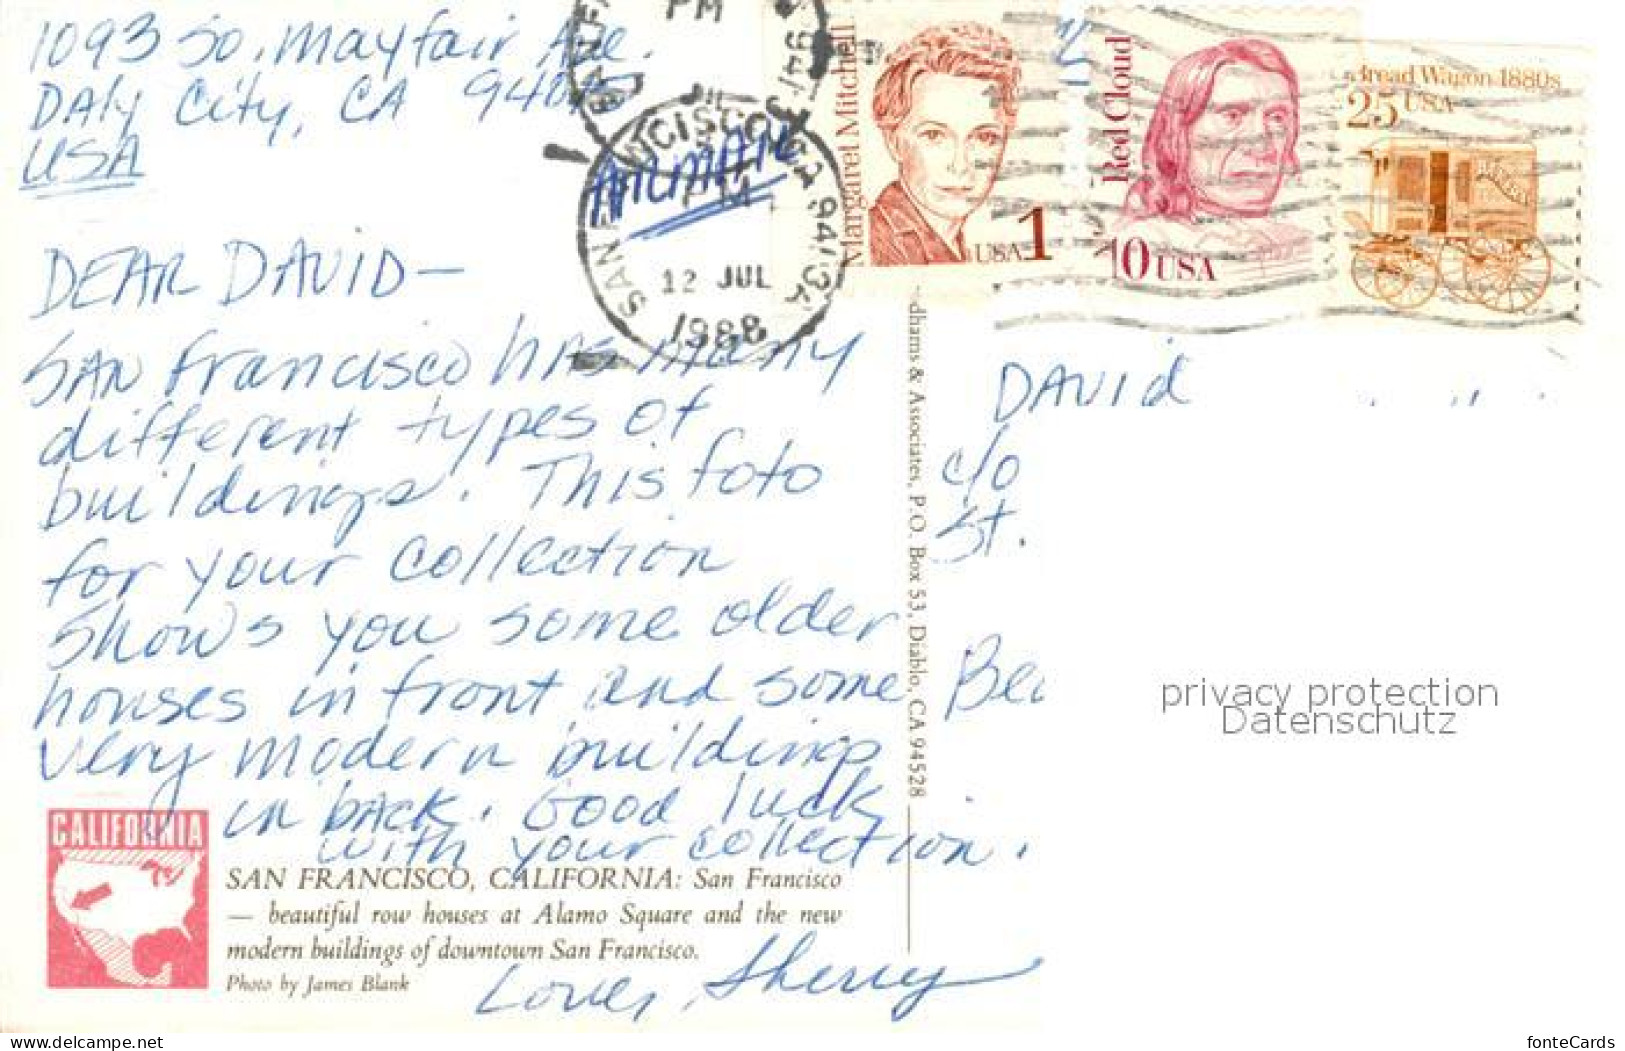 1093 So. Mayfair Ave.
DAly City, CA 94015
USA
AIRMAIL
PM
SAN FRANCISCO CA 941
PM
12 JUL
1988
Margaret Mitchell
USA 1
Red Cloud
10 USA
Bread Wagon 1880s
25 USA
BAKERY
DEAR DAVID —
SAN Francisco has many
different types of
buildings. This foto
for your collection
shows you some older
houses in front and some
very modern buildings
in back. Good luck
with your collection.
Love, Sherry
DAVID
c/o
St.
Be
dhams & Associates, P.O. Box 53, Diablo, CA 94528
privacy protection
Datenschutz
CALIFORNIA
SAN FRANCISCO, CALIFORNIA: San Francisco
— beautiful row houses at Alamo Square and the new
modern buildings of downtown San Francisco.
Photo by James Blank
www.delcampe.net
fonteCards